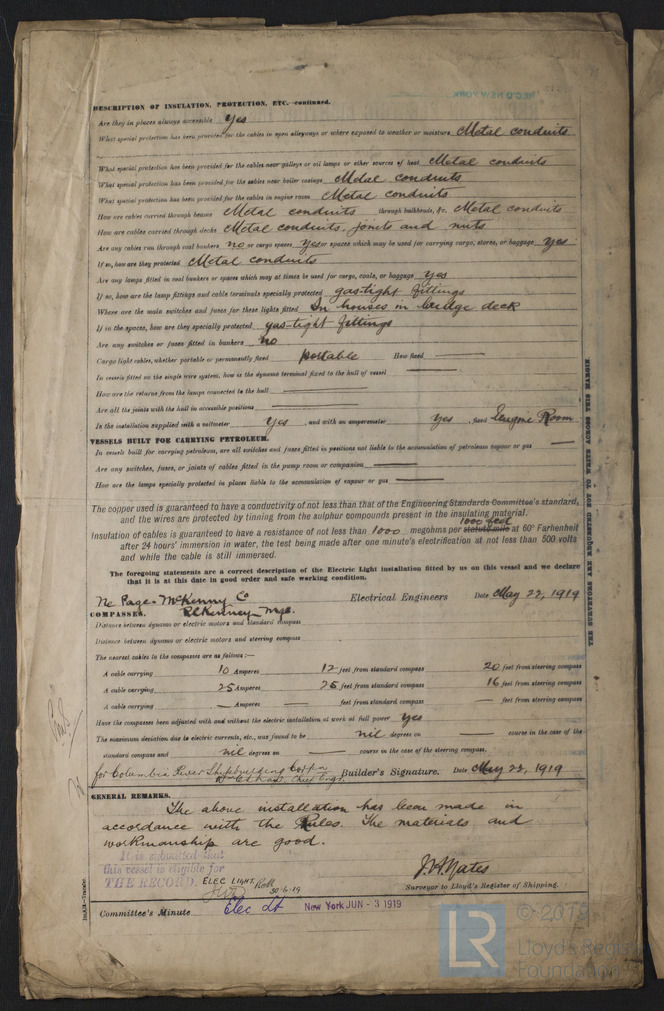 DESCRIPTION OF INSULATION, PROTECTION, ETC.—continued.
Are they in places always accessible Yes
What special protection has been provided for the cables in open alleyways or where exposed to weather or moisture Metal conduits
What special protection has been provided for the cables near galleys or oil lamps or other sources of heat Metal conduits
What special protection has been provided for the cables near boiler casings Metal conduits
What special protection has been provided for the cables in engine room Metal conduits
How are cables carried through beams Metal conduits through bulkheads, &c. Metal conduits
How are cables carried through decks Metal conduits, joints and nuts
Are any cables run through coal bunkers no or cargo spaces Yes or spaces which may be used for carrying cargo, stores, or baggage yes
If so, how are they protected Metal conduits
Are any lamps fitted in coal bunkers or spaces which may at times be used for cargo, coals, or baggage Yes
If so, how are the lamp fittings and cable terminals specially protected gas-tight fittings
Where are the main switches and fuses for these lights fitted In houses in bridge deck
If in the spaces, how are they specially protected gas-tight fittings
Are any switches or fuses fitted in bunkers no
Cargo light cables, whether portable or permanently fixed Portable How fixed
In vessels fitted on the single wire system, how is the dynamo terminal fixed to the hull of vessel
How are the returns from the lamps connected to the hull
Are all the joints with the hull in accessible positions
Is the installation supplied with a voltmeter Yes, and with an amperemeter Yes, fixed Engine Room
VESSELS BUILT FOR CARRYING PETROLEUM.
In vessels built for carrying petroleum, are all switches and fuses fitted in positions not liable to the accumulation of petroleum vapour or gas
Are any switches, fuses, or joints of cables fitted in the pump room or companion
How are the lamps specially protected in places liable to the accumulation of vapour or gas
The copper used is guaranteed to have a conductivity of not less than that of the Engineering Standards Committee's standard,
and the wires are protected by tinning from the sulphur compounds present in the insulating material.
1000 feet
Insulation of cables is guaranteed to have a resistance of not less than 1000 megohms per statute mile at 60° Farhenheit
after 24 hours' immersion in water, the test being made after one minute's electrification at not less than 500 volts
and while the cable is still immersed.
The foregoing statements are a correct description of the Electric Light installation fitted by us on this vessel and we declare
that it is at this date in good order and safe working condition.
Ne Page-McKenny Co Electrical Engineers Date May 22, 1919
COMPASSES.
Distance between dynamo or electric motors and standard compass
Distance between dynamo or electric motors and steering compass
The nearest cables to the compasses are as follows:—
A cable carrying 10 Amperes 12 feet from standard compass 20 feet from steering compass
A cable carrying 25 Amperes 25 feet from standard compass 16 feet from steering compass
A cable carrying — Amperes — feet from standard compass — feet from steering compass
Have the compasses been adjusted with and without the electric installation at work at full power Yes
The maximum deviation due to electric currents, etc., was found to be nil degrees on — course in the case of the
standard compass and nil degrees on — course in the case of the steering compass.
for Columbia River Shipbuilding Corp'n
Chief Engr. Builder's Signature. Date May 22, 1919
GENERAL REMARKS.
The above installation has been made in
accordance with the Rules. The materials and
workmanship are good.
It is submitted that
this vessel is eligible for
THE RECORD. ELEC LIGHT.
30-6-19
Surveyor to Lloyd's Register of Shipping.
Committee's Minute Elec Lt New York JUN - 3 1919
THE SURVEYORS ARE REQUESTED NOT TO WRITE ACROSS THIS MARGIN.
LR
Lloyd's Register
Foundation